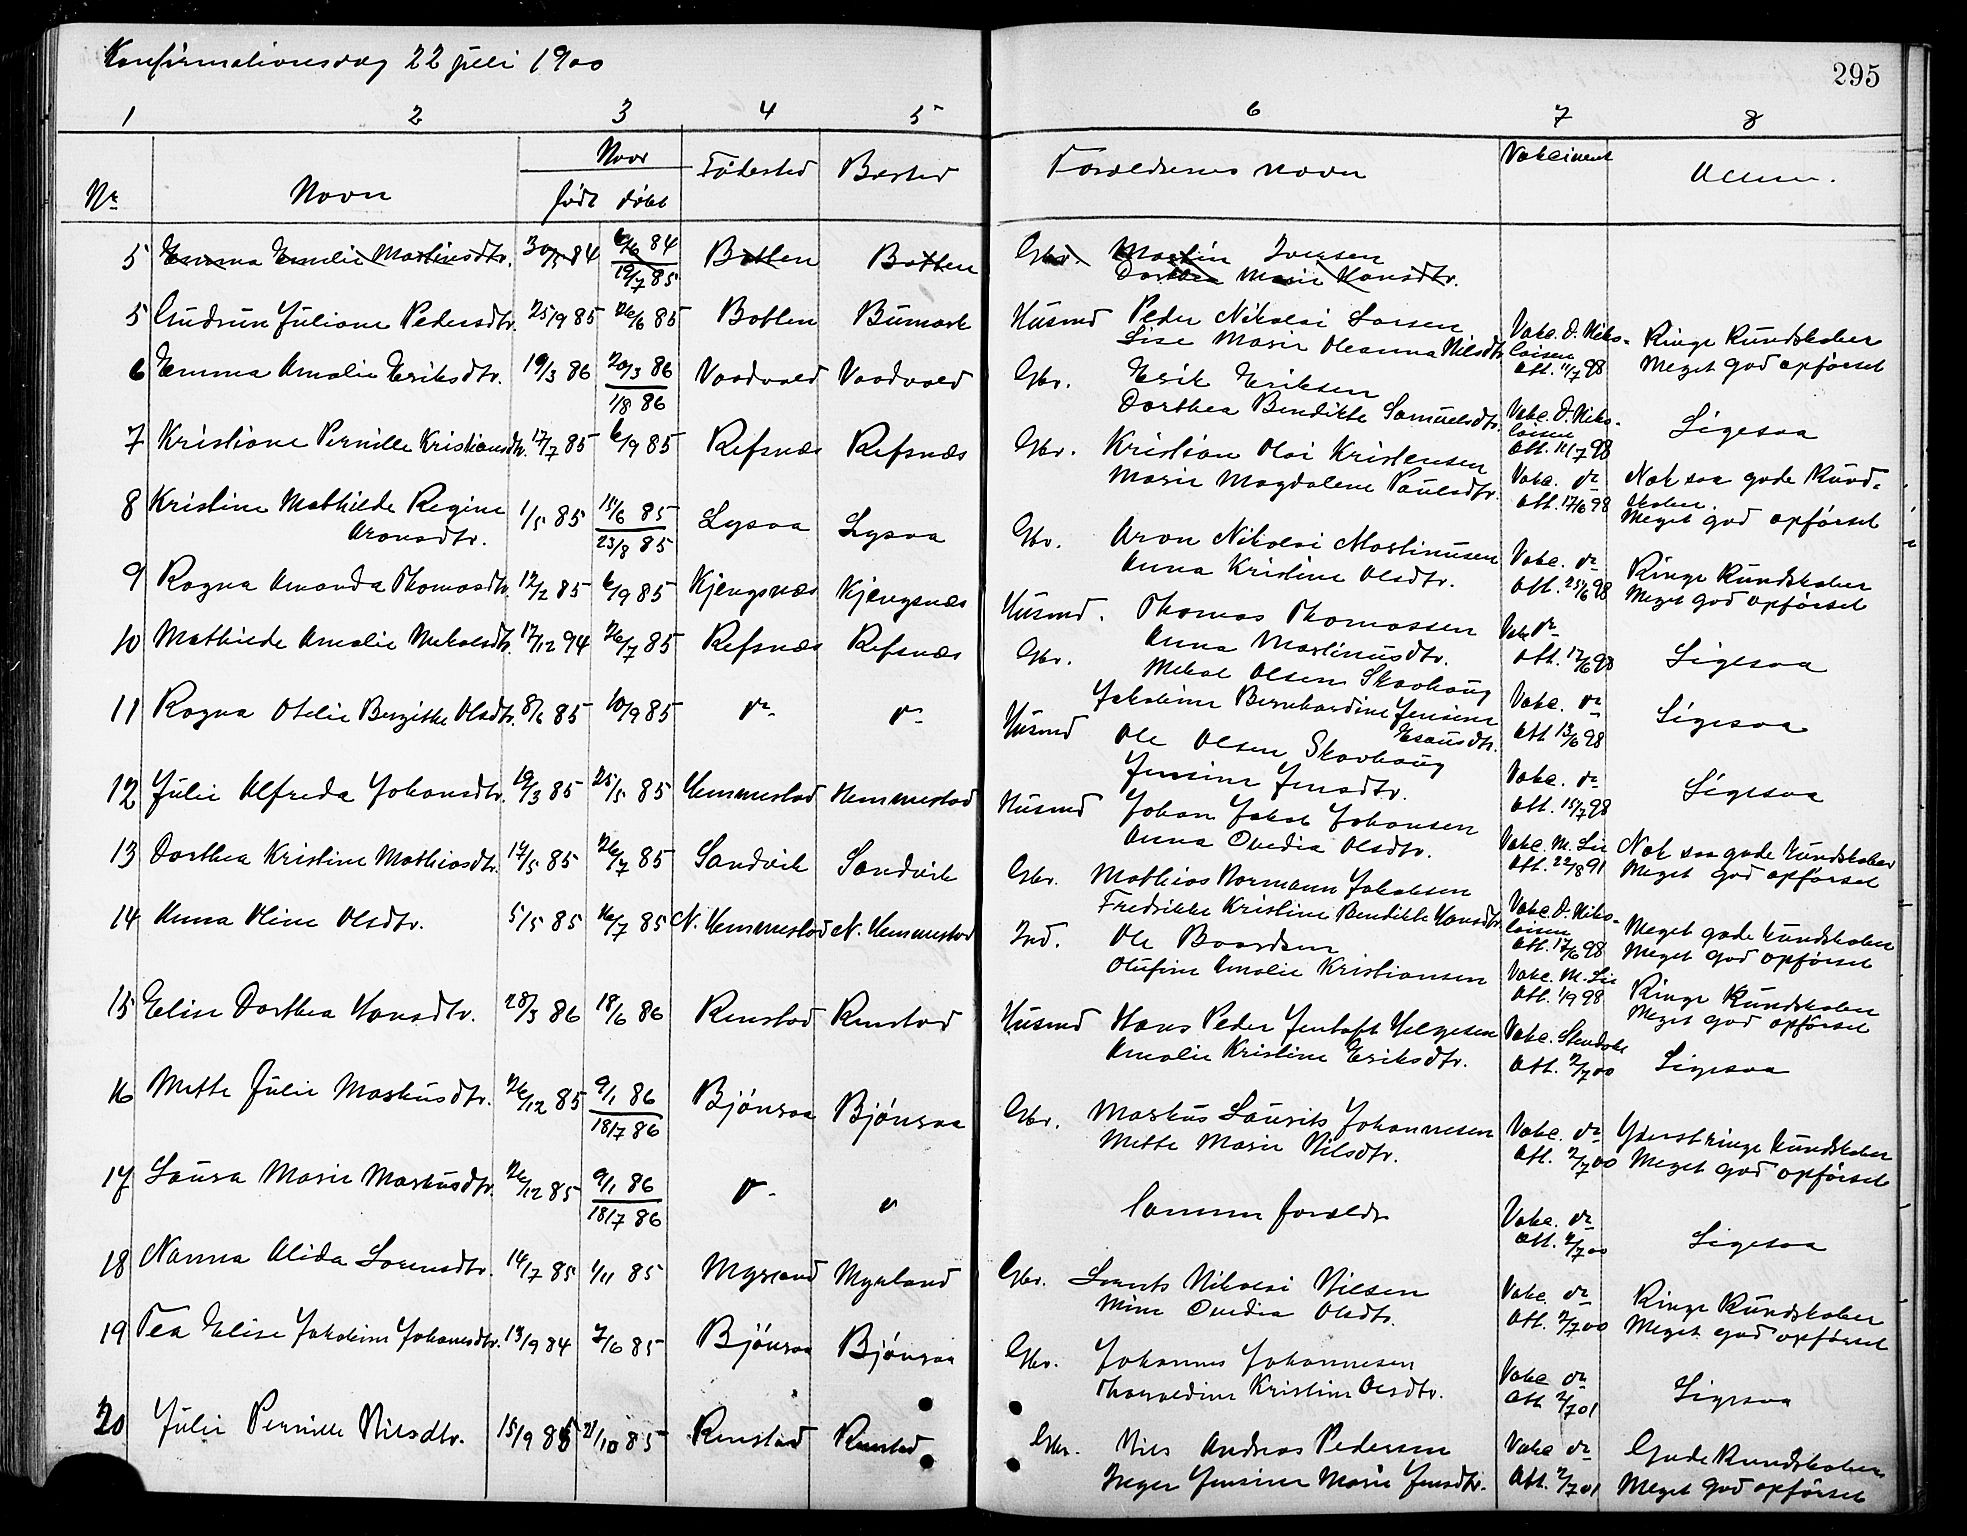 Konfirmationsdag 22 juli 1900
295
1 2 3 4 5 6 7 8
Nr Navn Naar født døbt Fødested Bosted Forældrenes navn Vakcineret Anm.
5 Emma Emilie Martinusdtr. 30/5 84 6/6 84 19/7 85 Botten Botten Gbr. Martin Iversen
Dorthea Marie Hansdtr.
5 Gudrun Juliane Pedersdtr. 25/9 85 26/6 85 Botten Bumark Husmd Peder Nikolai Larsen Vakc. D. Niko- Ringe Kundskaber
Lise Marie Oleanna Nilsdtr. laisen Att. 11/7 98 Meget god opførsel
6 Emma Amalie Eriksdtr. 19/3 86 20/3 86 1/8 86 Vaadvold Vaadvold Gbr. Erik Eriksen
Dorthea Bendikte Samuelsdtr. Vakc. D. Niko-
laisen Att. 11/7 98 Ligesaa
7 Kristiane Pernille Kristiansdtr. 17/7 85 6/9 85 Refsnæs Refsnæs Gbr. Kristian Olai Kristensen
Marie Magdalene Paulsdtr. Vakc. do Att. 17/6 98 Nok saa gode Kund-
skaber. Meget god opførsel
8 Kristine Mathilde Regine 1/5 85 15/6 85 23/8 85 Lysaa Lysaa
Aronsdtr. Gbr. Aron Nikolai Martinusen
Anna Kristine Olsdtr. Vakc. do Att. 25/6 98 Ringe Kundskaber
Meget god opførsel
9 Ragna Amanda Thomasdtr. 12/2 85 6/9 85 Kjengsnæs Kjengsnæs Husmd. Thomas Thomassen
Anna Martinusdtr. Vakc. do Att. 17/6 98 Ligesaa
10 Mathilde Amalie Mikalsdtr. 17/12 94 26/7 85 Refsnæs Refsnæs Gbr. Mikal Olsen Skavhaug
Jakobine Bernhardine Jensine
Esausdtr. Vakc. do Att 13/6 98 Ligesaa
11 Ragna Otelie Bergitte Olsdtr. 8/6 85 10/9 85 do do Husmd Ole Olsen Skavhaug
Jensine Jensdtr. Vakc. do Att. 15/7 98 Ligesaa
12 Julie Alfreda Johansdtr. 19/3 85 25/5 85 Hemmestad Hemmestad Husmd Johan Jakob Johansen
Anna Ovedia Olsdtr. Vakc. M. Lie Att. 22/8 91 Nok saa gode kundskaber
Meget god opførsel
13 Dorthea Kristine Mathiasdtr. 14/5 85 26/7 85 Sandvik Sandvik Gbr. Mathias Normann Jakobsen
Fredrikke Kristine Bendikte Hansdtr. Vakc. D. Niko-
laisen Att. 17/6 98 Meget gode kundskaber
Meget god opførsel
14 Anna Oline Olsdtr. 5/5 85 26/7 85 N. Hemmestad N. Hemmestad Ind. Ole Baardsen
Olufine Amalie Kristiansen Vakc. M. Lie Att. 1/9 98 Ringe Kundskaber
Meget god opførsel
15 Elise Dorthea Hansdtr. 28/3 86 18/6 86 Renstad Renstad Husmd Hans Peder Jentoft Helgesen
Amalie Kristine Eriksdtr. Att. 2/7 00 Ligesaa
16 Mette Julie Markusdtr. 26/12 85 9/1 86 18/7 86 Bjönraa Bjönraa Gbr. Markus Laurits Johannesen
Mette Marie Nilsdtr. Vakc. do Att. 2/7 00 Yderst ringe kundskaber
Meget god opførsel
17 Laura Marie Markusdtr. 26/12 85 9/1 86 18/7 86 do Samme forældr Vakc. do
Att. 2/7 00 Ligesaa
18 Nanna Alida Lorensdtr. 14/7 85 1/11 85 Myrland Myrland Gbr. Lorents Nikolai Nilsen
Mine Ovedia Olsdtr. Vakc. do Att. 2/7 00 Ringe Kundskaber
Meget god opførsel
19 Tea Elise Jakobine Johansdtr. 13/9 84 7/6 85 Bjönraa Bjönraa Gbr. Johannes Johannesen
Thoraldine Kristine Olsdtr. Vakc do Att 2/7 01 Ligesaa
20 Julie Pernille Nilsdtr. 15/9 85 21/10 85 Renstad Renstad Gbr. Nils Andreas Pedersen
Inger Jensine Marie Jensdtr. Vakc do Att. 2/7 01 Gode Kundskaber
Meget god opførsel